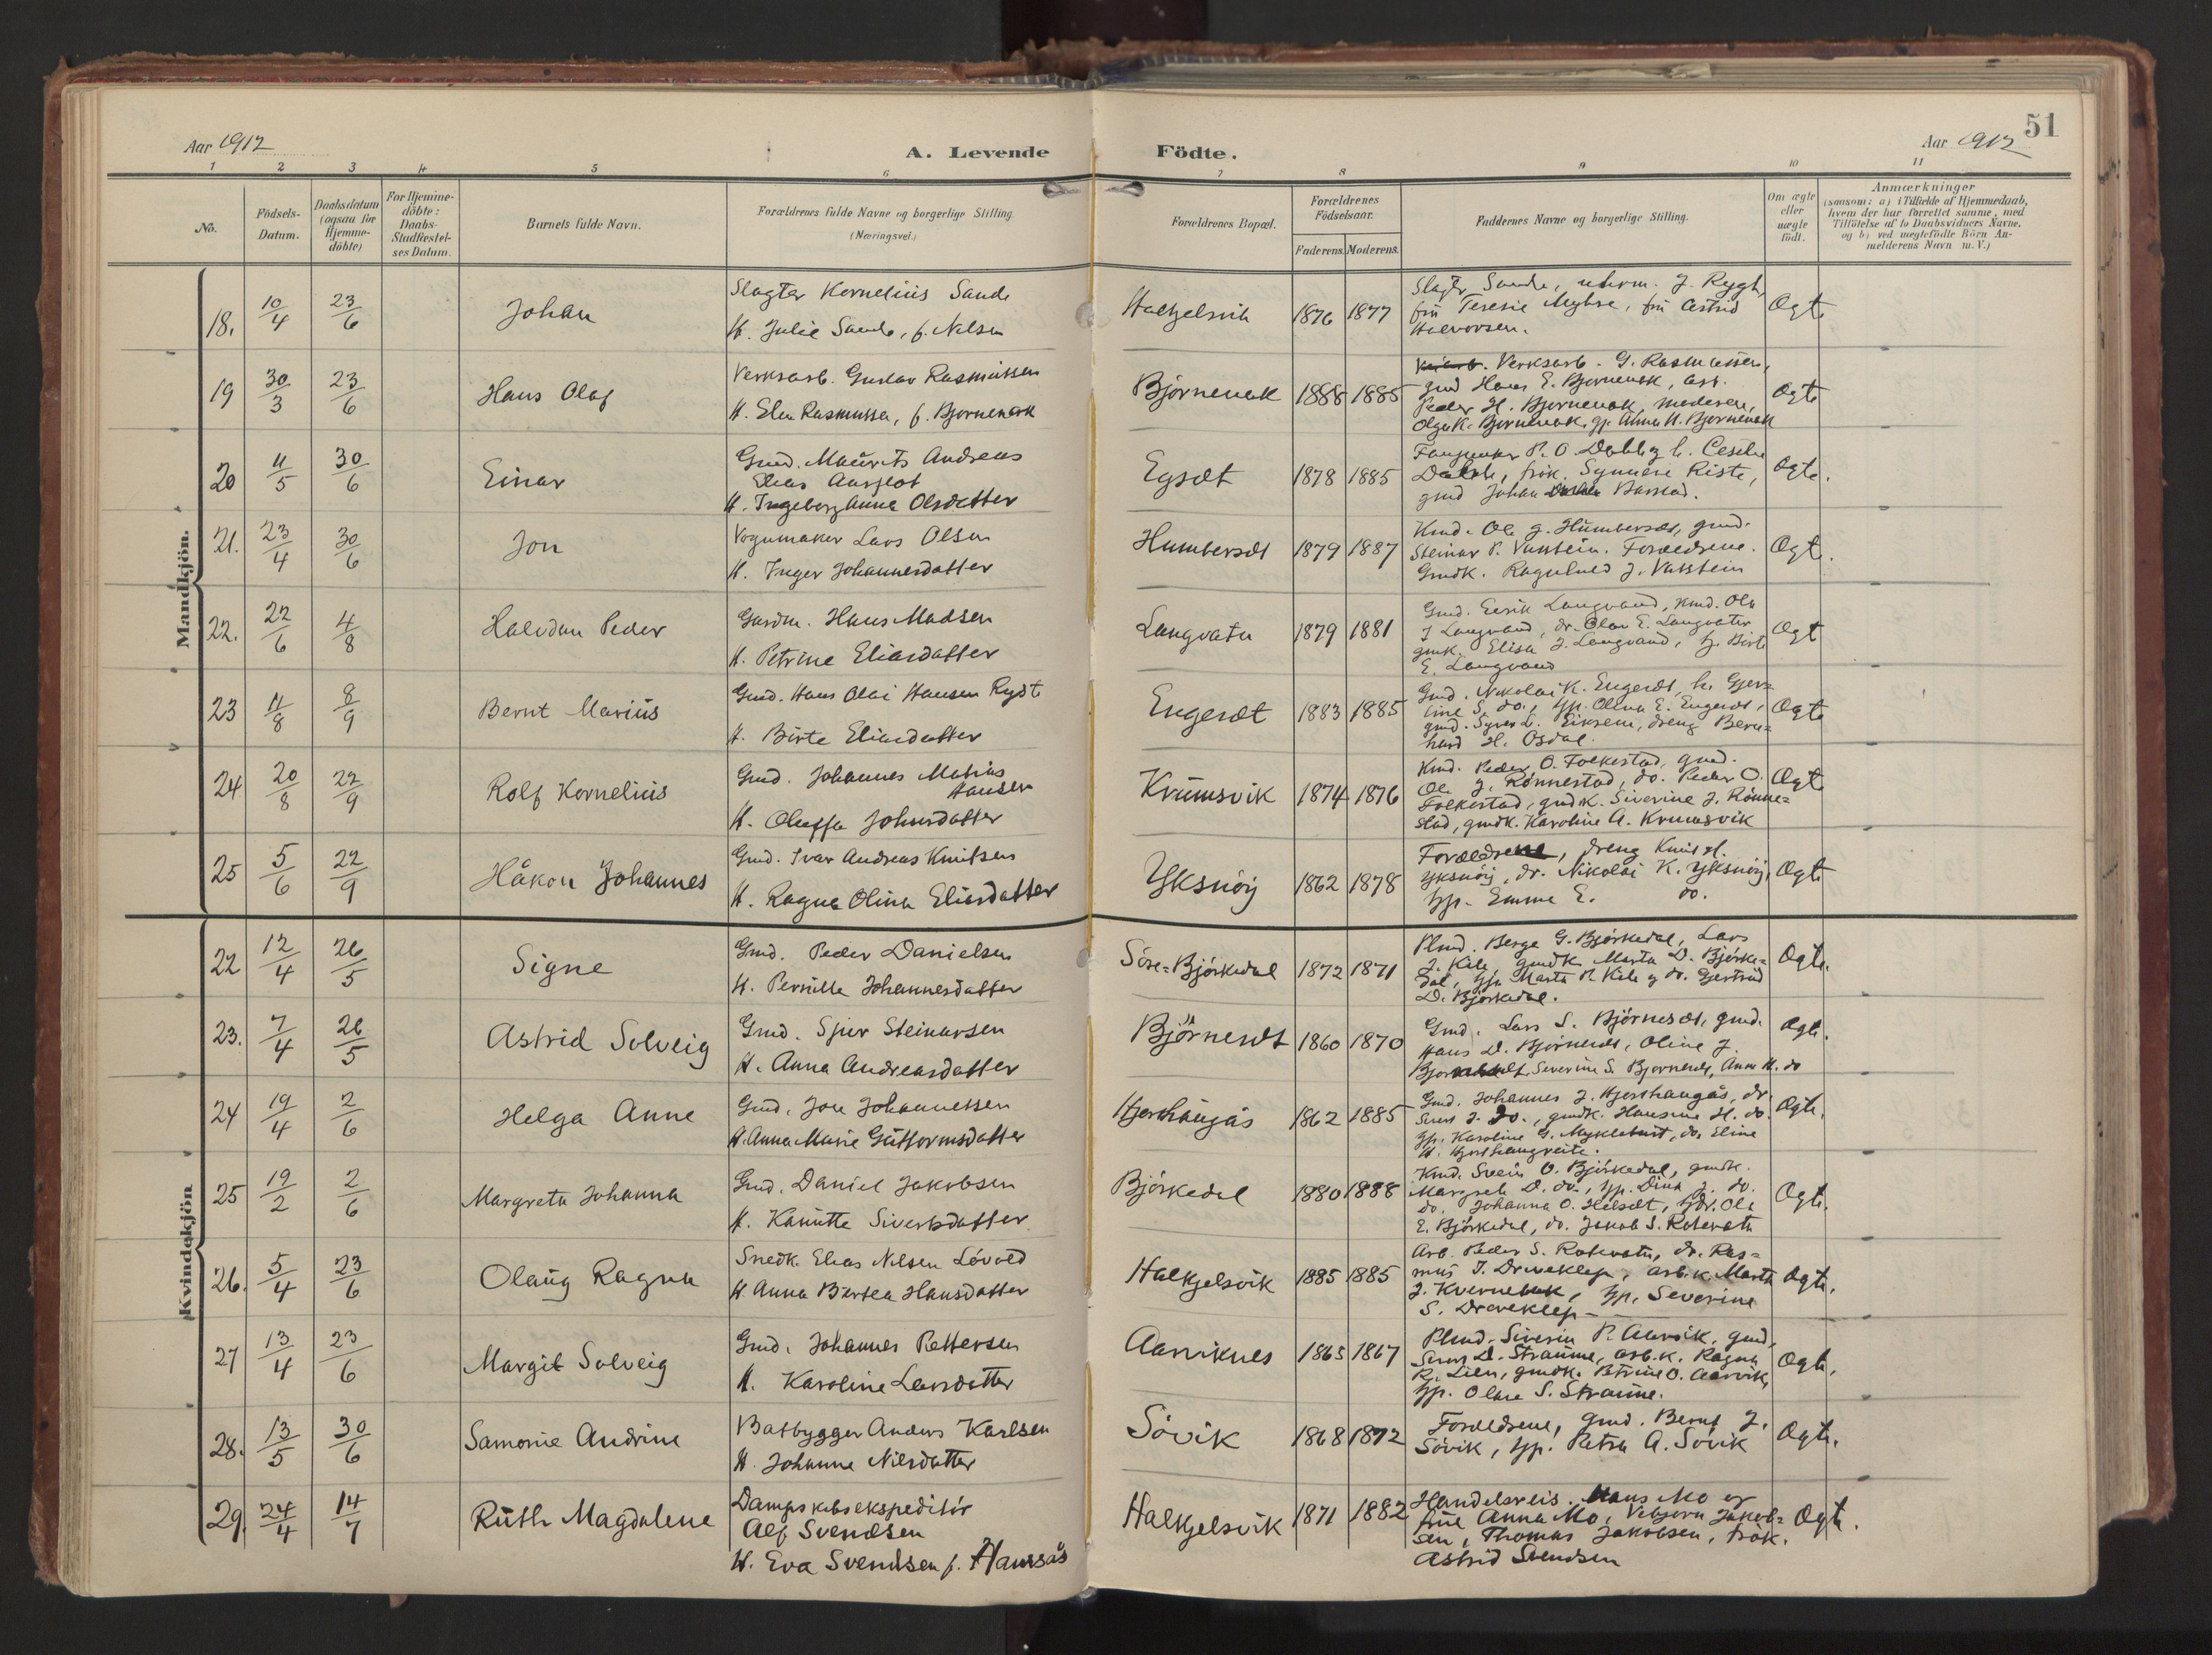 51
Aar 1912
A. Levende
Födte.
Aar 1912
1 2 3 4 5 6 7 8 9 10 11
No.
Födsels-
Datum.
Daabsdatum
(ogsaa for
Hjemme-
döbte)
For Hjemme-
döbte:
Daabs-
Stadfæstel-
ses Datum.
Barnets fulde Navn.
Forældrenes fulde Navne og borgerlige Stilling.
(Næringsvei.)
Forældrenes Bopæl.
Forældrenes
Födselsaar.
Faderens. Moderens.
Faddernes Navne og borgerlige Stilling.
Om ægte
eller
uægte
födt.
Anmærkninger
(saasom: a) i Tilfælde af Hjemmedaab,
hvem der har forrettet samme, med
Tilföielse af to Daabsvidners Navne,
og b) ved uægtefödte Börn An-
melderens Navn m.V.)
Mandkjön.
18. 10/4 23/6 Johan
Slagter Kornelius Sande
H. Julie Sande, f. Nilsen
1876 1877
Slagter Sande, J. Rygh,
fru Teresie Myhre, fru Astrid
Halvorsen.
Ogte
19 30/3 23/6 Hans Olaf
Verksarb. Gustav Rasmussen
H. Elen Rasmussen, f. Bjornenak
Björnenak 1888 1885
Verksarb. G. Rasmussen,
gmd Hans E. Bjornenak, arb.
Peder H. Bjornenak, moderen,
Olga K. Bjornenak, gp. Anna H. Bjornenak
Ogte
20 11/5 30/6 Einar
Gmd. Maurits Andreas
Elias Aasflot
H. Ingeborg Anna Olsdatter
Egsæt 1878 1885
P. O. h.
frök. Synnøve Riste,
gmd Johan
Ogte.
21. 23/4 30/6 Jon
Vognmaker Lars Olsen
H. Inger Johannesdatter
Humberset 1879 1887
Kmd. Ole J. Humberset, gmd.
Steinar P. Forældrene.
Gmdk. Ragnhild J. Vassbein
Ogte.
22. 22/6 4/8 Halvdan Peder
Gardm. Hans Madsen
H. Petrine Eliasdatter
Langvatn 1879 1881
Gmd. Eerik Langvand, kmd. Ola
J Langvand, dr. Olav E. Langvatn
gmk. Elisa J. Langvand, gp. Birte
E. Langvand
Ogt
23 11/8 8/9 Bernt Marius
Gmd. Hans Olai Hansen Ryst
H. Birte Eliasdatter
Engeset 1883 1885
Gmd. Nikolai K. Engeset, h. Gjer-
tine S. do., gp. Olina E. Engeset,
gmd. Eiksem, dreng Bern-
hard H. Osdal.
Ogte
24 20/8 22/9 Rolf Kornelius
Gmd. Johannes Matias
Hansen
H. Oluffa Johnsdatter
Krumsvik 1874 1876
Kmd. Peder O. Folkestad, gmd.
Ole J. Rönnestad, do. Peder O.
Folkestad, gmdk. Siverine J. Rönne-
stad, gmdk. Karoline A. Krumsvik
Ogte
25 5/6 22/9 Håkon Johannes
Gmd. Ivar Andreas Knutsen
H. Ragna Olina Eliasdatter
Yksnöy 1862 1878
Forældrene, dreng Knut H.
Yksnöy, dr. Nikolai K. Yksnöy,
gp. Emma E. do.
Ogte
Kvindekjön
22 12/4 26/5 Signe
Gmd. Peder Danielsen
H. Pernille Johannesdatter
Söre-Björkedal 1872 1871
Plmd. Berge G. Björkedal, Lars
J. Kile, gmdk. Marta D. Björke-
dal, gp. Marta P. Kile og do. Gjertrud
D. Björkedal.
Ogte.
23. 7/4 26/5 Astrid Solveig
Gmd. Sjur Steinarsen
H. Anna Andreasdatter
Björneset 1860 1870
Gmd. Lars S. Björneset, gmd.
Hans D. Björneset, Oline J.
Severine S. Bjorneset, Anne H. do
Ogte.
24 19/4 2/6 Helga Anne
Gmd. Jon Johannessen
H. Anna Marie Guttormsdatter
Hjorthaugås 1862 1885
Gmd. Johannes J. Hjorthaugås, dr.
J. do., gmdk. Hansine H. do.
gp. Karoline G. Myklebust, do. Eline
H.
Ogte.
25 19/2 2/6 Margreta Johanna
Gmd. Daniel Jakobsen
H. Kanutte Sivertsdatter
Björkedal 1880 1888
Kmd. Svein O. Björkedal, gmdk.
Margrete D. do., gp. Dina J. do.
do. Johanna O. Helset, gdr. Ole
E. Björkedal, do. Jakob S. Rotevatn
Ogte.
26. 5/4 23/6 Olaug Ragna
Snedk. Elias Nilsen Lövold
H. Anna Bertea Hansdatter
Halkjelsvik 1885 1885
Arb. Peder S. Rotevatn, dr. Ras-
mus T. Dreveklep, arb.k. Marta
J. Kvernenak, gp. Severine
S. Dreveklep
Ogte.
27 13/4 23/6 Margit Solveig
Gmd. Johannes Pettersen
H. Karoline Larsdatter
Aarviknes 1865 1867
Plmd. Siverin P. Aarvik, gmd.
D. Straume, arb.k. Ragna
R. Lien, gmdk. Petrine O. Aarvik,
gp. S. Straume.
Ogte.
28. 13/5 30/6 Samonie Andrine
Batbygger Anders Karlsen
H. Johanne Nilsdatter
Sövik 1868 1872
Forældrene, gmd. Bernt J.
Sövik, gp. Petra A. Sövik
Ogte.
29. 24/4 14/7 Ruth Magdalene
Dampskibsekspeditör
Alf Svendsen
H. Eva Svendsen f. Aarsås
Halkjelsvik 1871 1882
Handelsreis. Hans Mo og
frue Anna Mo, Vebjörn Jakob-
sen, Thomas Jakobsen, frök.
Astrid Svendsen
Ogte.